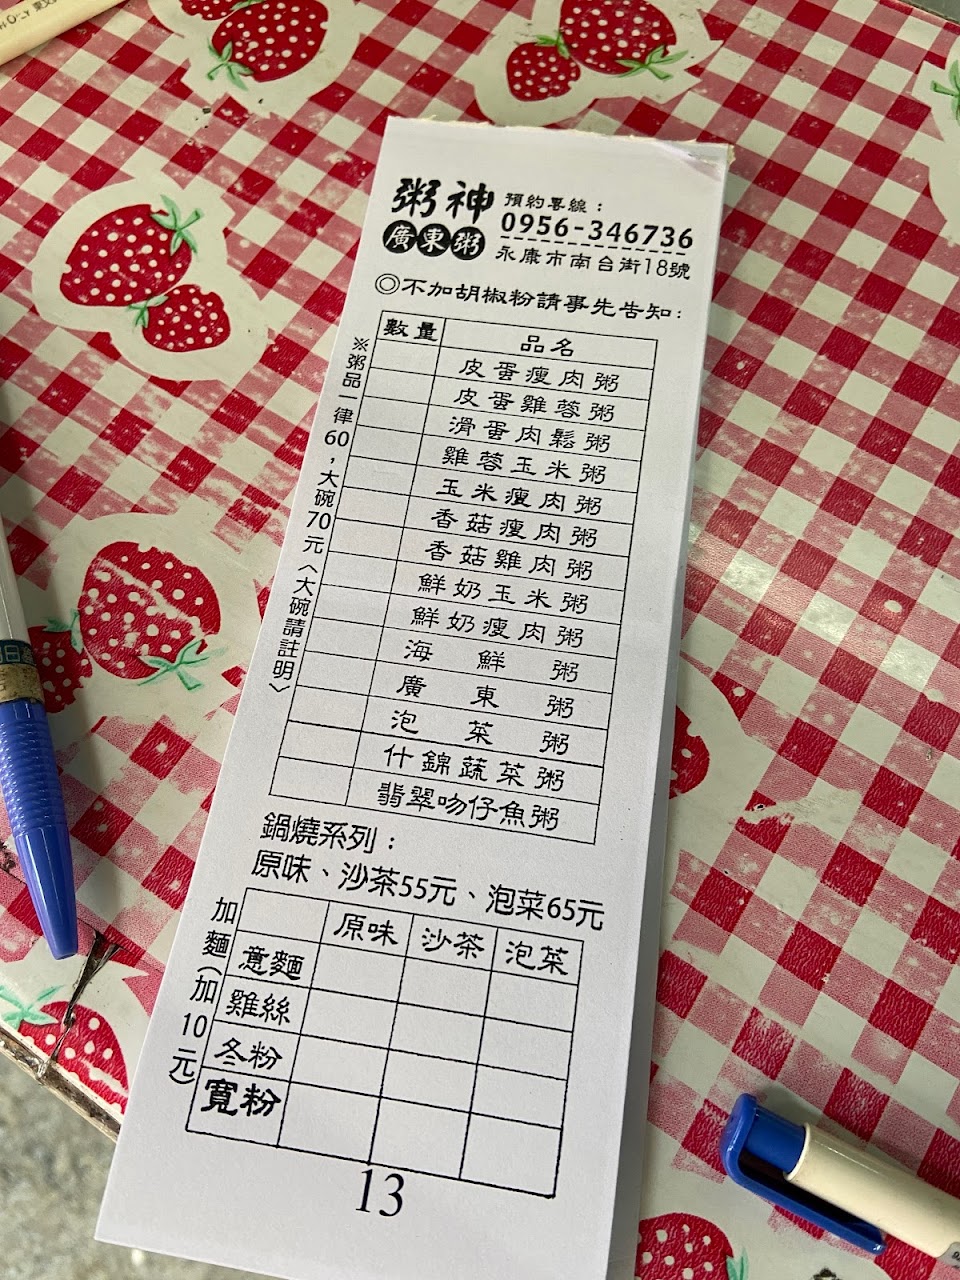 粥神
廣東粥
預約專線：
0956-346736
永康市南台街18號
◎不加胡椒粉請事先告知：
數量 品名
皮蛋瘦肉粥
皮蛋雞蓉粥
滑蛋肉鬆粥
雞蓉玉米粥
玉米瘦肉粥
香菇瘦肉粥
香菇雞肉粥
鮮奶玉米粥
鮮奶瘦肉粥
海鮮粥
廣東粥
泡菜粥
什錦蔬菜粥
翡翠吻仔魚粥
※粥品一律60，大碗70元〈大碗請註明〉
鍋燒系列：
原味、沙茶55元、泡菜65元
原味 沙茶 泡菜
意麵
雞絲
冬粉
寬粉
加麵(加10元)
13